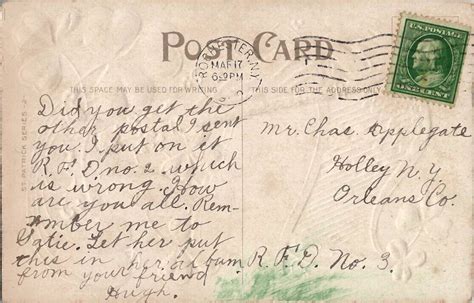 POST CARD
ROCHESTER, N.Y.
MAR 17
6-PM
U.S. POSTAGE
ONE CENT
THIS SPACE MAY BE USED FOR WRITING
THIS SIDE FOR THE ADDRESS ONLY
ST. PATRICK SERIES
Did you get the
other postal I sent
you. I put on it
R.F.D. no. 2. which
is wrong. How
are you all. Rem-
ember me to
Let her put
this in her album
from your friend
Hugh.
Mr. Chas. Applegate
Holley N.Y.
Orleans Co.
R.F.D. No. 3.